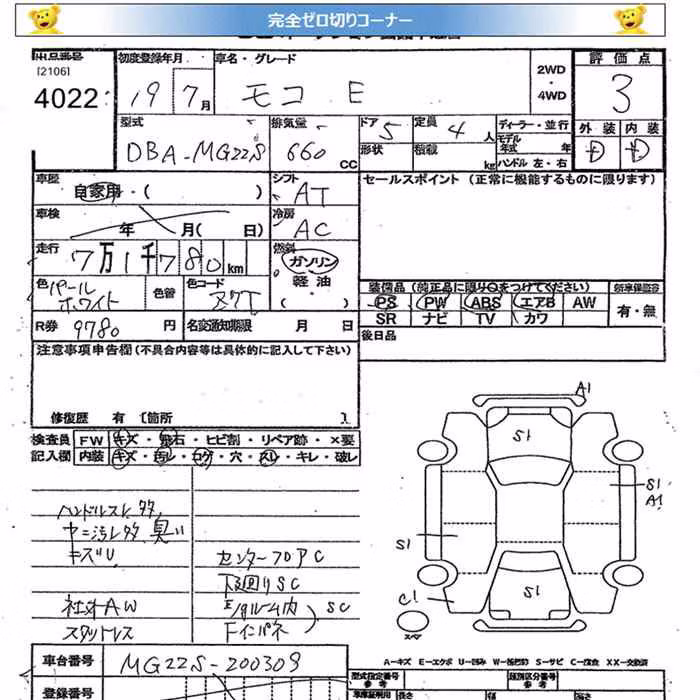 完全ゼロ切りコーナー
出品番号
[2106]
4022
初度登録年月
19 7月
車名・グレード
モコ E
2WD
・
4WD
評価点
3
外装 内装
D D
型式
DBA-MG22S
排気量
660 CC
ドア 5
形状
定員 4 人
積載 kg
ディーラー・並行
モデル年式 年
ハンドル 左・右
車歴
自家用・( )
シフト
AT
セールスポイント (正常に機能するものに限ります)
車検
年 月( 日)
冷房
AC
走行
7万1千780km
燃料
ガソリン
軽油
・
( )
色
パール
ホワイト
色替
色コード
Z7T
装備品 (純正品に限り○をつけてください)
PS PW ABS エアB AW
SR ナビ TV カワ
有・無
R券 9780 円
名変通知期限 月 日
後日品
注意事項申告欄(不具合内容等は具体的に記入して下さい)
修復歴 有 [箇所 ]
検査員 FW キズ・飛石・ヒビ割・リペア跡・×要
記入欄 内装 キズ・汚レ・コゲ・穴・スレ・キレ・破レ
A1
S1
S1
A1
S1
S1
C1
スペア
ハンドルスレ多
ヤニ汚レ多 臭い
キズU
センターフロアC
下廻りSC
社外AW
スタットレス
SC
Fインパネ
A-キズ E-エクボ U-凹み W-板金跡 S-サビ C-腐食 XX-交換済
車台番号 MG22S-200309
型式指定番号
参考
類別区分番号
参考
登録番号
長さ
幅
高さ